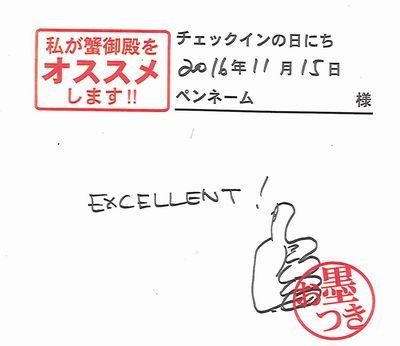 私が蟹御殿を
オススメ
します!!
チェックインの日にち
2016年11月15日
ペンネーム 様
EXCELLENT!
お墨
つき